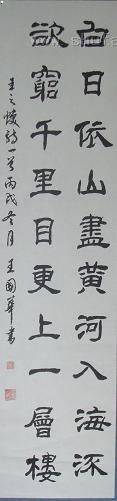 白日依山盡黃河入海流
欲窮千里目更上一層樓
王之渙詩一首丙戌冬月王國華書